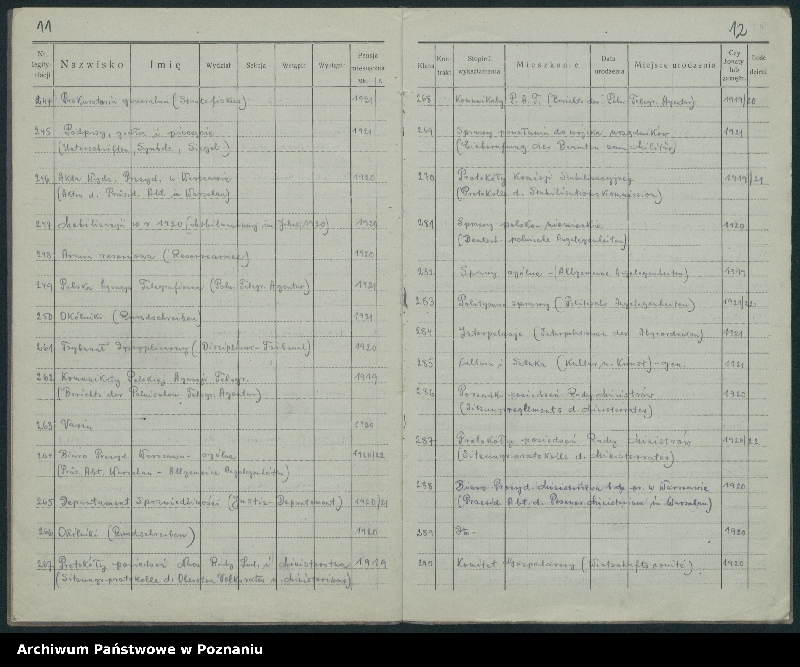 11
Nr. legitymacji Nazwisko Imię Wydział Sekcja Wstąpił: Wystąpił: Pensja miesięczna
244 Prokuratoria generalna (Staatsfiskus) 1921
245 Podpisy, godła i pieczęcie 1921
(Unterschriften, Symbole, Siegel)
246 Akta Wydz. Prezyd. w Warszawie 1920
(Akten d. Präsid. Abt. in Warschau)
247 Mobilizacja w r. 1920 (Mobilmachung im Jahre 1920) 1920
248 Armia rezerwowa (Reservearmee) 1920
249 Polska Agencja Telegraficzna (Poln. Telegr. Agentur) 1921
250 Okólniki (Rundschreiben) 1921
261 Trybunał Dyscyplinarny (Disciplinar-Tribunal) 1920
262 Komunikaty Polskiej Agencji Telegr. 1919
(Berichte der Polnischen Telegr. Agentur)
263 Varia 1920
264 Biuro Prezyd. Warszawa - ogólne 1920/22
(Präs. Abt. Warschau - Allgemeine Angelegenheiten)
265 Departament Sprawiedliwości (Justiz-Departement) 1920/21
266 Okólniki (Rundschreiben) 1920
267 Protokóły posiedzeń Rady Lud. i Ministerstwa 1919
(Sitzungsprotokolle d. Obersten Volksrates u. Ministeriums)
12
Klasa Kontrakt Stopień wykształcenia Mieszkanie Data urodzenia Miejsce urodzenia Czy żonaty lub zamężn. Ilość dzieci
268 Komunikaty P. A. T. (Berichte der Poln. Telegr. Agentur) 1919/20
269 Sprawy powołania do wojska urzędników 1921
(Einberufung der Beamten zum Militär)
270 Protokóły Komisji Stabilizacyjnej 1919/21
(Protokolle d. Stabilisationskommission)
281 Sprawy polsko-niemieckie 1920
(Deutsch-polnische Angelegenheiten)
282 Sprawy ogólne - (Allgemeine Angelegenheiten) 1919
283 Polityczne sprawy (Politische Angelegenheiten) 1921/22
284 Interpelacje (Interpelationen der Abgeordneten) 1921
285 Kultura i Sztuka (Kultur u. Kunst) - gen. 1921
286 Porządki posiedzeń Rady Ministrów 1920
(Sitzungsreglements d. Ministerrates)
287 Protokóły posiedzeń Rady Ministrów 1920/22
(Sitzungsprotokolle d. Ministerrates)
288 Biuro Prezyd. Ministerstwa b. dz. pr. w Warszawie 1920
(Präsid. Abt. d. Posener Ministeriums in Warschau)
289 1920
290 Komitet Gospodarczy (Wirtschaftskomité) 1920
Archiwum Państwowe w Poznaniu